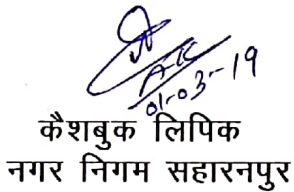 01-03-19
कैशबुक लिपिक
नगर निगम सहारनपुर